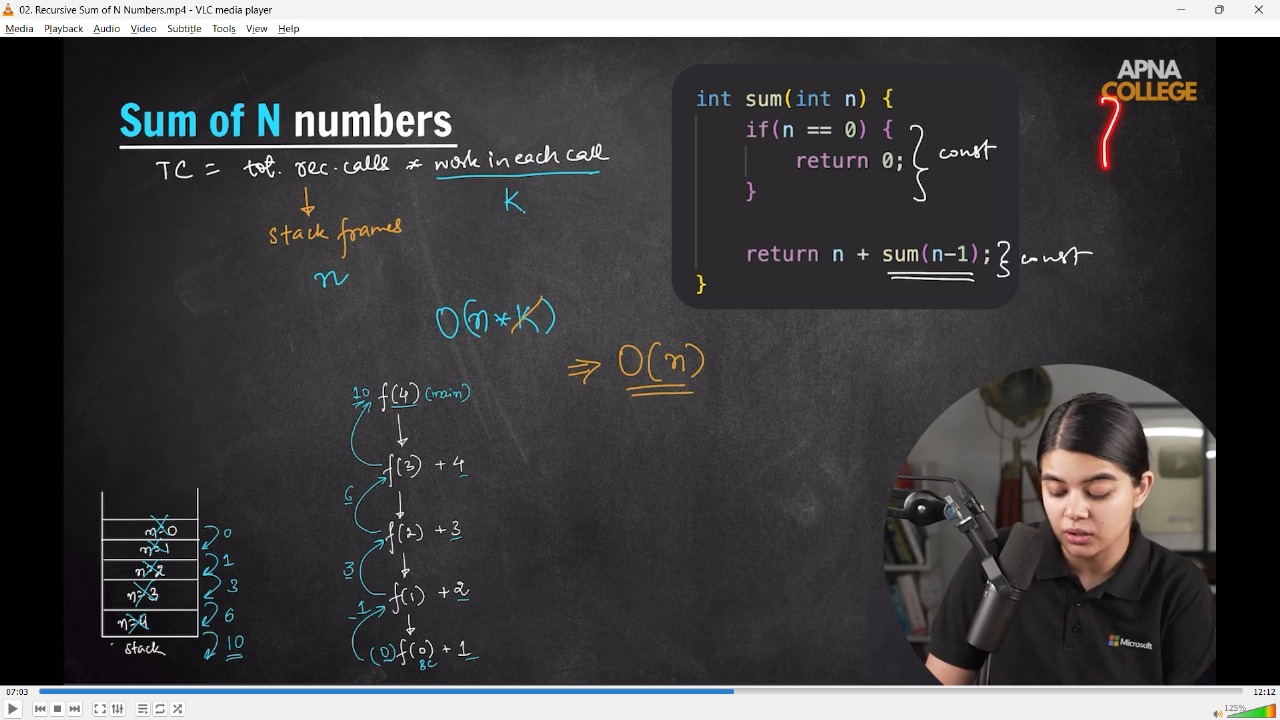 02. Recursive Sum of N Numbers.mp4 - VLC media player
Media Playback Audio Video Subtitle Tools View Help
APNA
COLLEGE
Sum of N numbers
TC = tot. rec. calls * work in each call
K
stack frames
n
O(n*K)
⇒ O(n)
int sum(int n) {
if(n == 0) {
return 0;
}
const
return n + sum(n-1);
} const
}
10 f(4) (main)
f(3) + 4
6
f(2) + 3
3
f(1) + 2
1
(0) f(0) + 1
BC
n=0
0
n=1
1
n=2
3
n=3
6
n=4
10
stack
Microsoft
07:03
12:12
125%